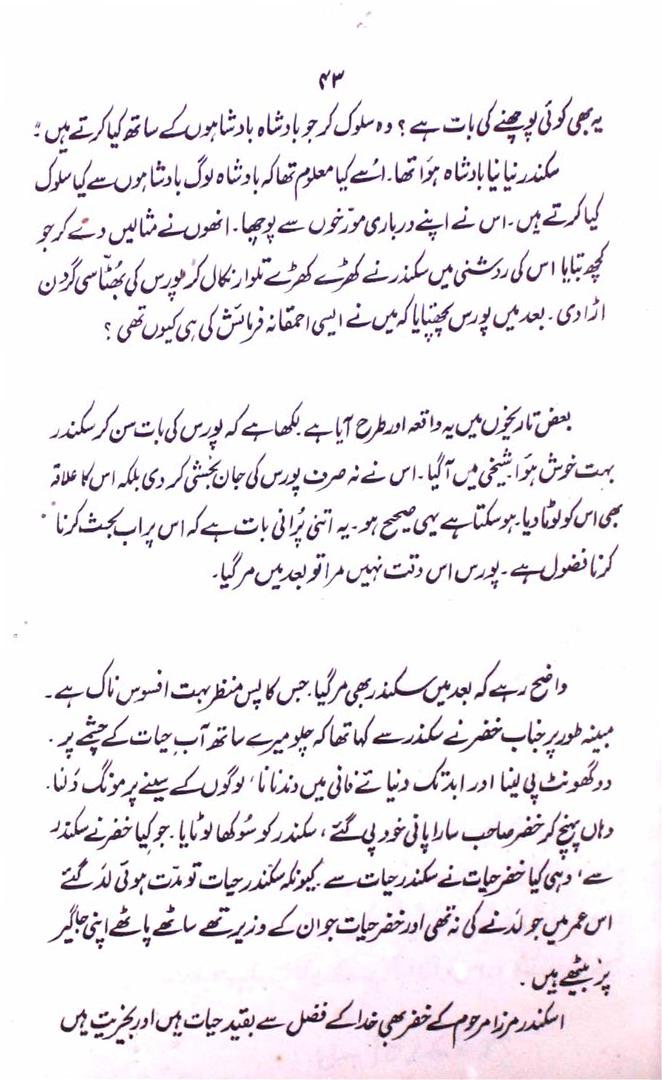 ۴۳
یہ بھی کوئی پوچھنے کی بات ہے ؟ وہ سلوک کر جو بادشاہ بادشاہوں کے ساتھ کیا کرتے ہیں "
سکندر نیا نیا بادشاہ ہوا تھا۔ اسے کیا معلوم تھا کہ بادشاہ لوگ بادشاہوں سے کیا سلوک
کیا کرتے ہیں۔ اس نے اپنے درباری مورّخوں سے پوچھا۔ انھوں نے مثالیں دے کر جو
کچھ بتایا اس کی روشنی میں سکندر نے کھڑے کھڑے تلوار نکال کر پورس کی بھُٹّا سی گردن
اڑا دی۔ بعد میں پورس پچھتایا کہ میں نے ایسی احمقانہ فرمائش کی ہی کیوں تھی ؟
بعض تاریخوں میں یہ واقعہ اور طرح آیا ہے۔ لکھا ہے کہ پورس کی بات سن کر سکندر
بہت خوش ہوا۔ شیخی میں آ گیا۔ اس نے نہ صرف پورس کی جان بخشی کر دی بلکہ اس کا علاقہ
بھی اس کو لوٹا دیا۔ ہو سکتا ہے یہی صحیح ہو۔ یہ اتنی پُرانی بات ہے کہ اس پر اب بحث کرنا
کرنا فضول ہے۔ پورس اس وقت نہیں مرا تو بعد میں مر گیا۔
واضح رہے کہ بعد میں سکندر بھی مر گیا۔ جس کا پس منظر بہت افسوس ناک ہے۔
مبینہ طور پر جناب خضر نے سکندر سے کہا تھا کہ چلو میرے ساتھ آبِ حیات کے چشمے پر۔
دو گھونٹ پی لینا اور ابد تک دنیائے فانی میں دندنانا، لوگوں کے سینے پر مونگ دَلنا۔
وہاں پہنچ کر خضر صاحب سارا پانی خود پی گئے، سکندر کو سُوکھا لوٹایا۔ جو کیا خضر نے سکندر
سے، وہی کیا خضر حیات نے سکندر حیات سے۔ کیونکہ سکندر حیات تو مدّت ہوئی لد گئے
اس عمر میں جو لدنے کی نہ تھی اور خضر حیات جو ان کے وزیر تھے ساٹھے پاٹھے اپنی جاگیر
پر بیٹھے ہیں۔
اسکندر مرزا مرحوم کے خضر بھی خدا کے فضل سے بقید حیات ہیں اور بخیریت ہیں